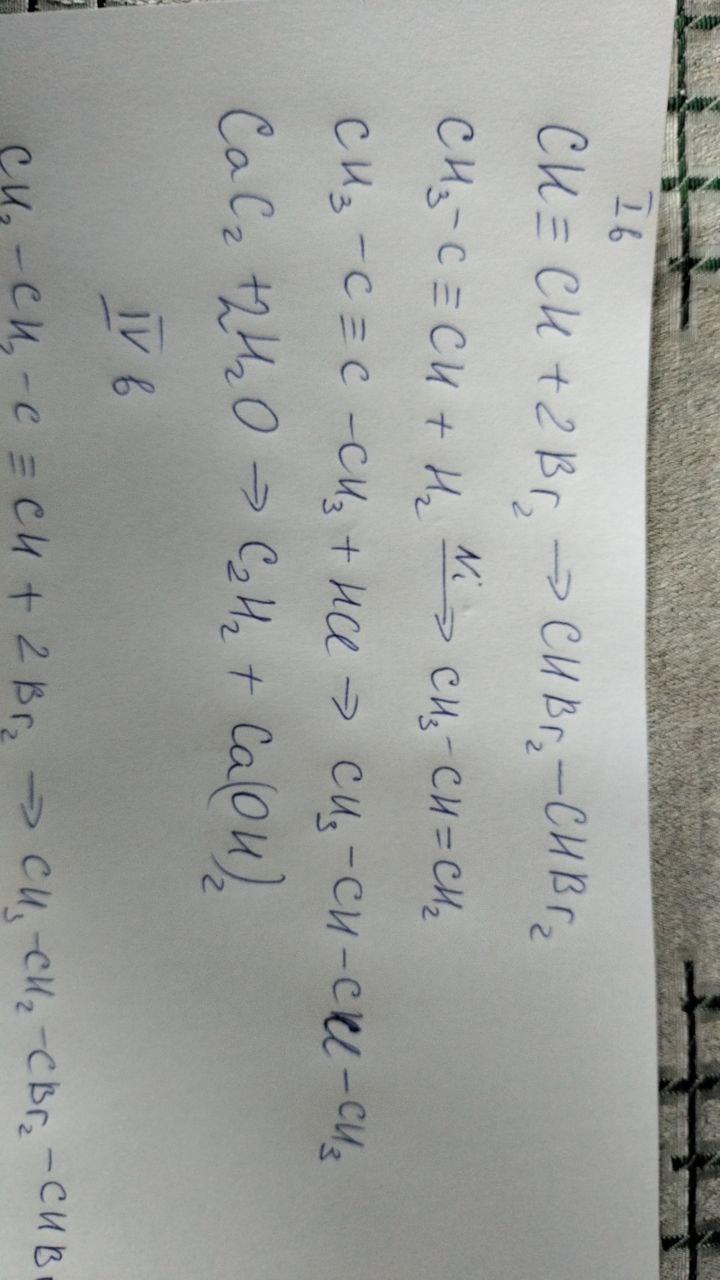 I в
CH≡CH + 2Br₂ → CHBr₂–CHBr₂
CH₃–C≡CH + H₂ Ni→ CH₃–CH=CH₂
CH₃–C≡C–CH₃ + HCl → CH₃–CH–CCl–CH₃
CaC₂ + 2H₂O → C₂H₂ + Ca(OH)₂
IV в
CH₃–CH₂–C≡CH + 2Br₂ → CH₃–CH₂–CBr₂–CHBr